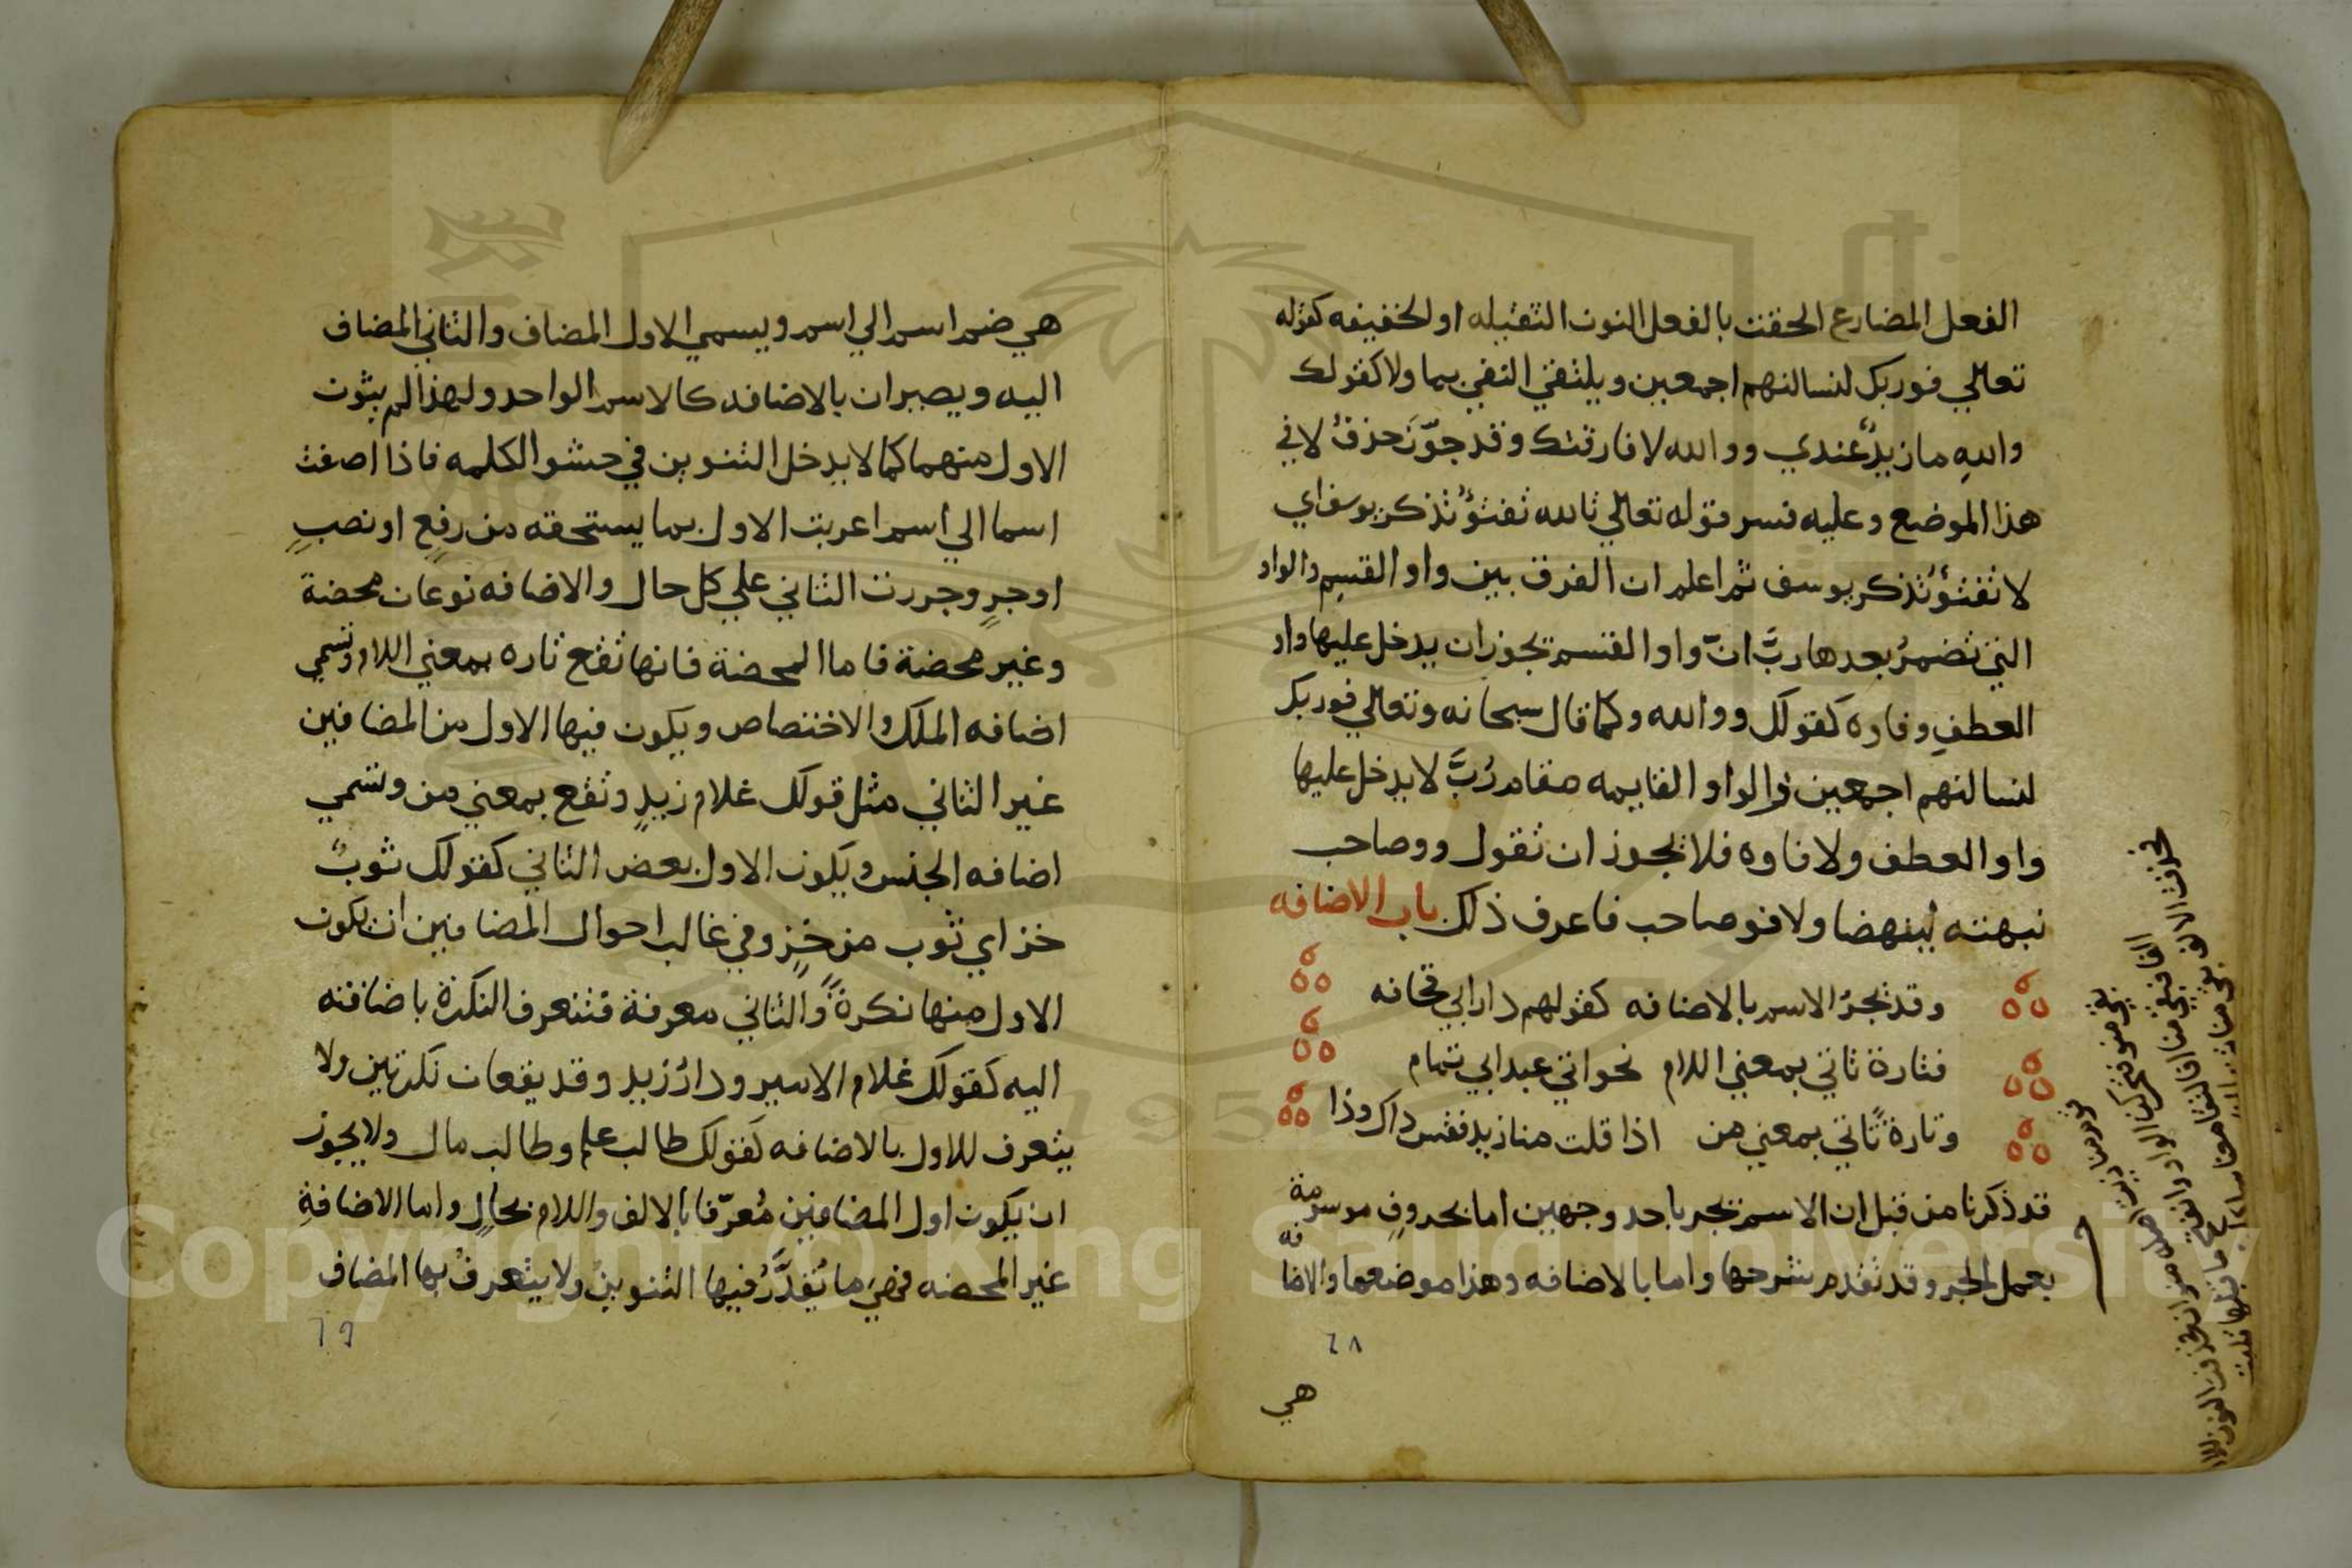 الفعل المضارع الحقت بالفعل النون الثقيله او الخفيفه كقوله
تعالي فوربك لنسالنهم اجمعين ويلتقي النفي بما ولا كقولك
واللهِ ما زيدٌ عندي ووالله لا فارقتك وقد جوّزَ حذفُ لا في
هذا الموضع وعليه فسر قوله تعالي تالله تفتؤُ تذكر يوسف اي
لا تفتؤُ تذكر يوسف ثم اعلم ان الفرق بين واو القسم والواو
التي تضمرُ بعدها ربَّ انّ واو القسم تجوز ان يدخل عليها واو
العطف وفاوه كقولك ووالله وكما قال سبحانه وتعالي فوربك
لنسالنهم اجمعين والواو القايمه مقام رُبَّ لا يدخل عليها
واو العطف ولا فاوه فلا يجوز ان تقول ووصاحب
نبهته لينهضا ولا فوصاحب فاعرف ذلك باب الاضافه
وقد تجرُ الاسم بالاضافه كقولهم دار ابي قحافه
فتارة تاتي بمعني اللام نحو اتي عبد ابي تمام
وتارة تاتي بمعني من اذا قلت منا زيد فقس ذاك وذا
قد ذكرنا من قبل ان الاسم تجر باحد وجهين اما بحروفٍ موسومة
بعمل الجر وقد تقدم شرحها واما بالاضافه وهذا موضعها والاضافه
٦٨
هي
هي ضم اسم الي اسم ويسمي الاول المضاف والثاني المضاف
اليه ويصيران بالاضافه كالاسم الواحد ولهذا لم ينون
الاول منهما كما لا يدخل التنوين في حشو الكلمه فاذا اضفت
اسما الي اسم اعربت الاول بما يستحقه من رفعٍ او نصبٍ
او جرٍ وجررت الثاني علي كل حال والاضافه نوعان محضة
وغير محضة فاما المحضة فانها تقع تاره بمعني اللام وتسمي
اضافه الملك والاختصاص ويكون فيها الاول من المضافين
غير الثاني مثل قولك غلام زيدٍ وتقع بمعني من وتسمي
اضافه الجنس ويكون الاول بعض الثاني كقولك ثوبُ
خز اي ثوب من خزٍ وفي غالب احوال المضافين ان يكون
الاول منها نكرةً والثاني معرفة فتتعرف النكرة باضافته
اليه كقولك غلام الامير ودارُ زيد وقد يقعان نكرتين ولا
يتعرف للاول بالاضافه كقولك طالب علم وطالب مال ولا يجوز
ان يكون اول المضافين مُعرّفا بالالف واللام بحالٍ واما الاضافةِ
غير المحضه فهيَ ما تُقدَّرُ فيها التنوين ولا يتعرفُ بها المضاف
٦٩
Copyright © King Saud University